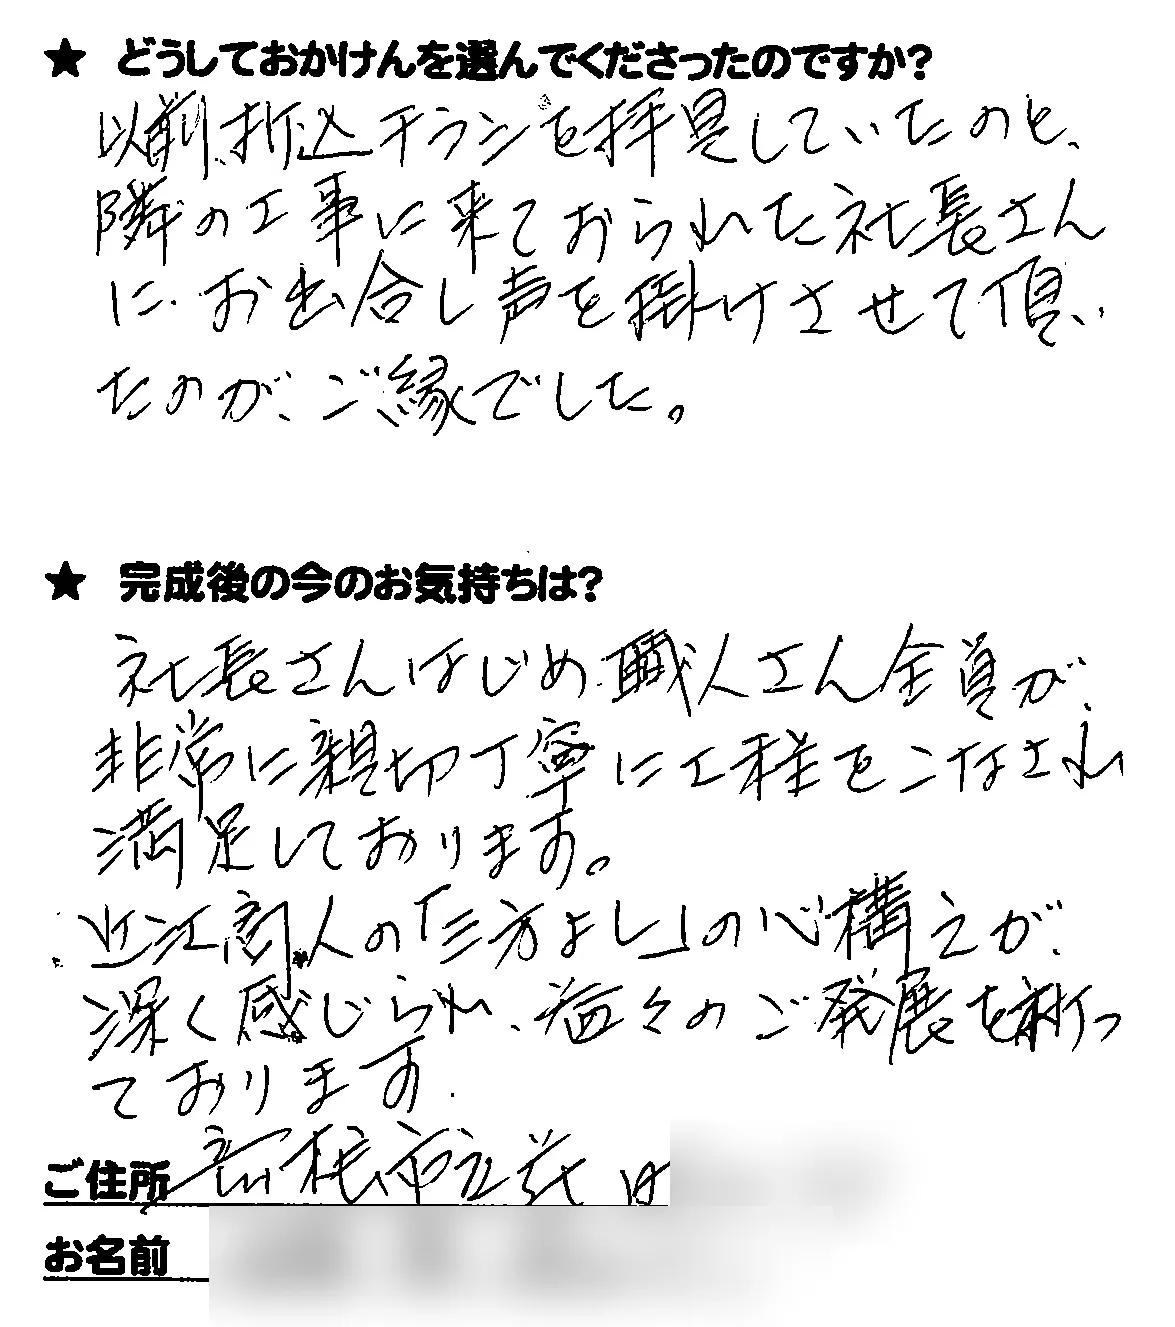 ★ どうしておかけんを選んでくださったのですか?
以前、折込チラシを拝見していたのと、
隣の工事に来ておられた社長さん
に、お出合し声を掛けさせて頂い
たのが、ご縁でした。
★ 完成後の今のお気持ちは?
社長さんはじめ職人さん全員が、
非常に親切丁寧に工程をこなされ
満足しております。
近江商人の「三方よし」の心構えが、
深く感じられ、益々のご発展を祈っ
ております.
ご住所 市
お名前